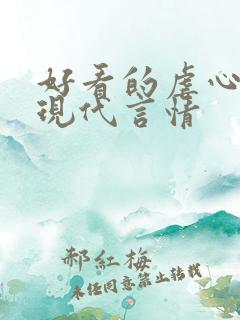 好看的虐心
現代言情
郝紅梅
未经同意禁止转载